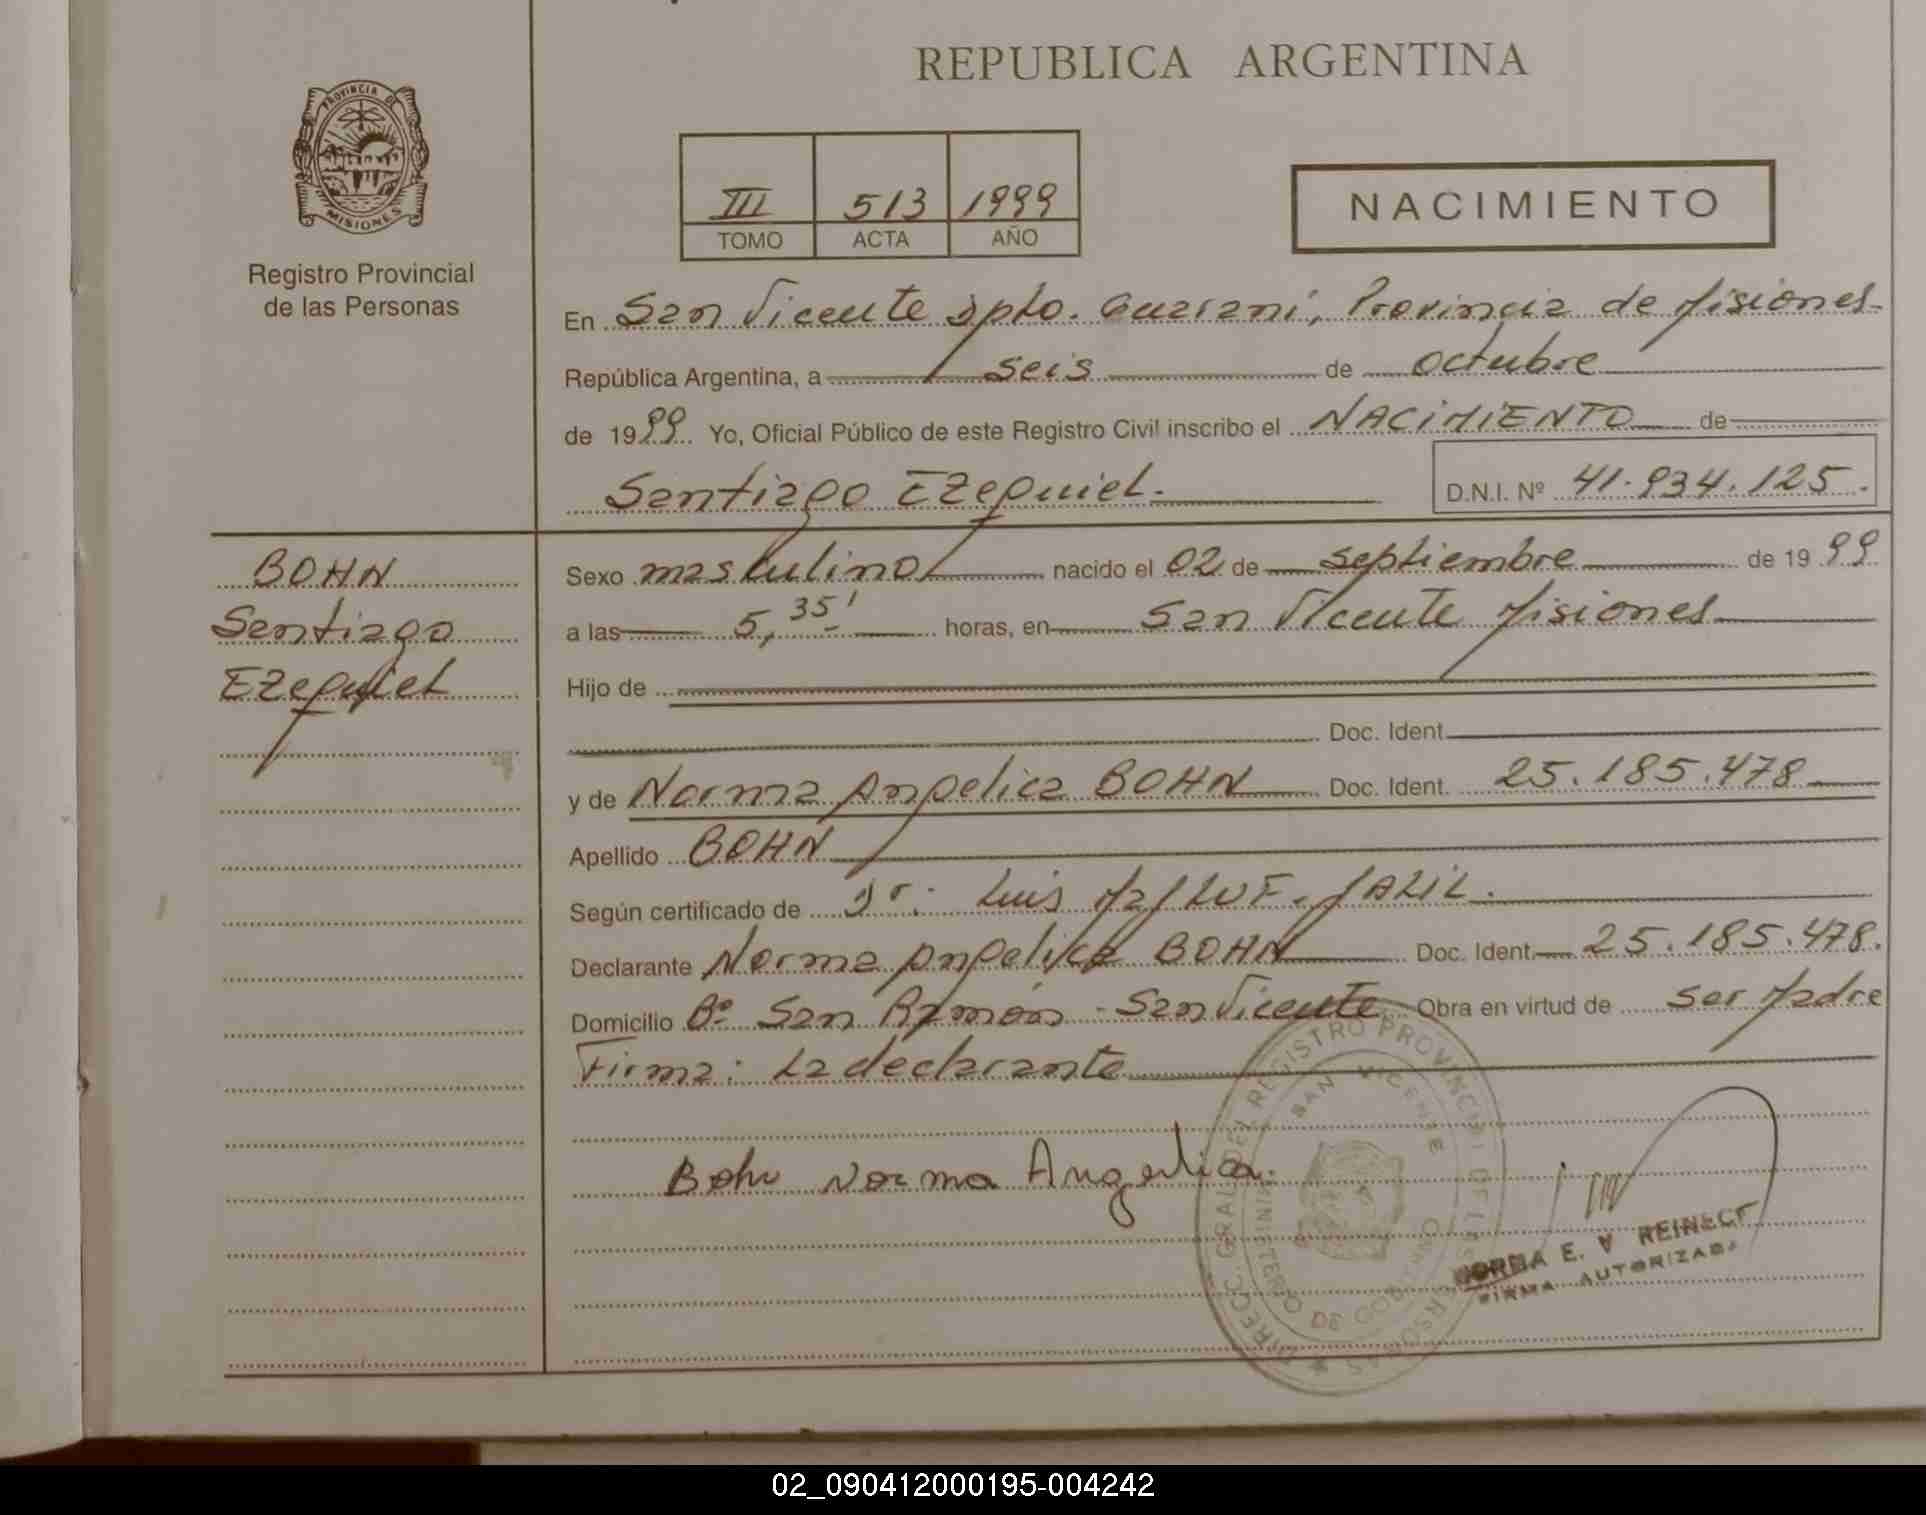 REPUBLICA ARGENTINA
PROVINCIA DE
MISIONES
Registro Provincial
de las Personas
III 513 1999
TOMO ACTA AÑO
NACIMIENTO
En San Vicente Dpto. Guarani, Provincia de Misiones
República Argentina, a seis de octubre
de 1999 Yo, Oficial Público de este Registro Civil inscribo el NACIMIENTO de
Santiago Ezequiel. D.N.I. Nº 41.934.125.
BOHN
Santiago
Ezequiel
Sexo masculino nacido el 02 de septiembre de 1999
a las 5,35' horas, en San Vicente Misiones
Hijo de
Doc. Ident.
y de Norma Angelica BOHN Doc. Ident. 25.185.478
Apellido BOHN
Según certificado de Dr. Luis
Declarante Norma Angelica BOHN Doc. Ident. 25.185.478.
Domicilio Bº San Ramón - San Vicente Obra en virtud de ser Madre
Firma: La declarante
Bohn Norma Angelica.
REGISTRO PROVINCIAL DE LAS PERSONAS
SAN VICENTE
MINISTERIO DE GOBIERNO
NORMA E. V REINECK
FIRMA AUTORIZADA
02_090412000195-004242